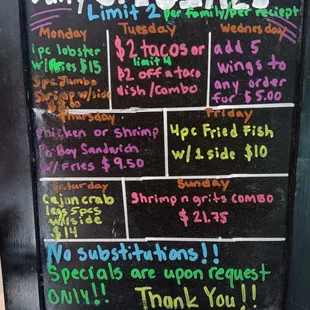 Limit 2 per family/per reciept
Monday
1pc lobster
w/fries $15
5pc Jumbo
Shrimp w/side
Tuesday
$2 tacos or
limit 4
$2 off a taco
dish/combo
Wednesday
add 5
wings to
any order
for $5.00
Thursday
chicken or shrimp
Po Boy Sandwich
w/ Fries $9.50
Friday
4pc Fried Fish
w/1 side $10
Saturday
Cajun crab
legs 5pcs
w/side
$14
Sunday
Shrimp n grits combo
$21.75
No substitutions!!
Specials are upon request
ONLY!! Thank You!!